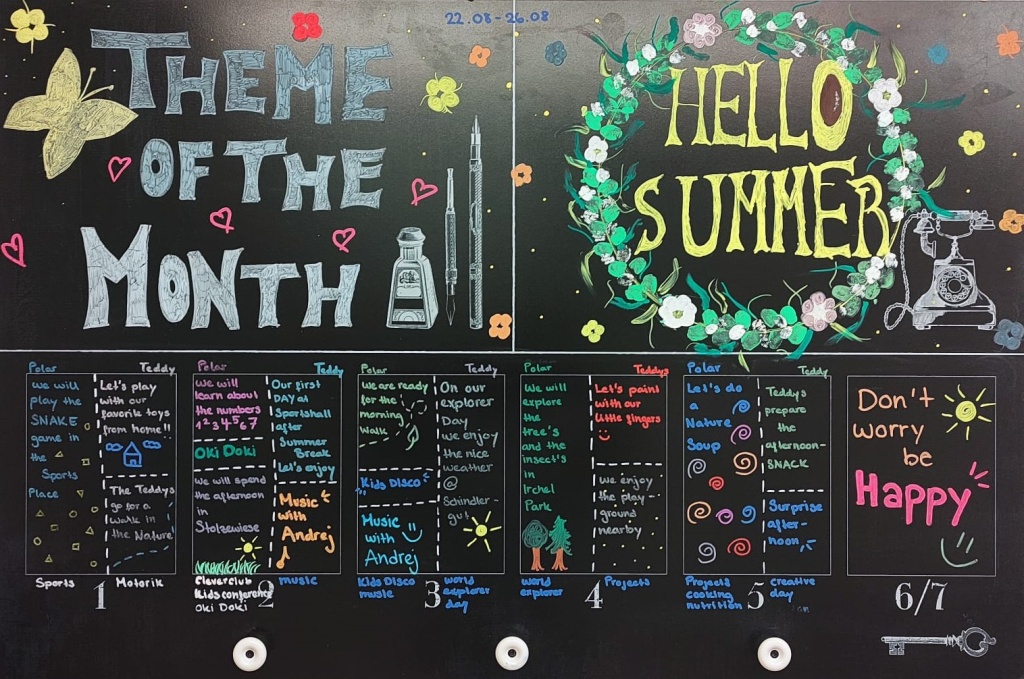 22.08-26.08
THEME
OF THE
MONTH
HELLO
SUMMER
Polar
we will
play the
SNAKE
game in
the
Sports
Place
Teddy
Let's play
with our
favorite toys
from home!!
The Teddys
go for a
walk in
the Nature
Sports
Motorik
1
Polar
we will
learn about
the numbers
1234567
Oki Doki
we will spend
the afternoon
in
Stolzewiese
Teddy
Our first
DAY at
Sportshall
after
Summer
Break
Let's enjoy
Music
with
Andrej
Cleverclub
Kids conference
Oki Doki
music
2
Polar
we are ready
for the
morning
walk
Kids Disco
Music
with
Andrej
Teddy
On our
explorer
Day
we enjoy
the nice
weather
@
Schindler-
gut
Kids Disco
music
world
explorer
day
3
Polar
we will
explore
the
tree's
and the
insect's
in
Irchel
Park
Teddys
Let's paint
with our
little fingers
we enjoy
the play-
ground
nearby
world
explorer
Projects
4
Polar
Let's do
a
Nature
Soup
Teddy
Teddys
prepare
the
afternoon-
SNACK
Surprise
after-
noon
Projects
cooking
nutrition
creative
day
5
Don't
worry
be
Happy
6/7